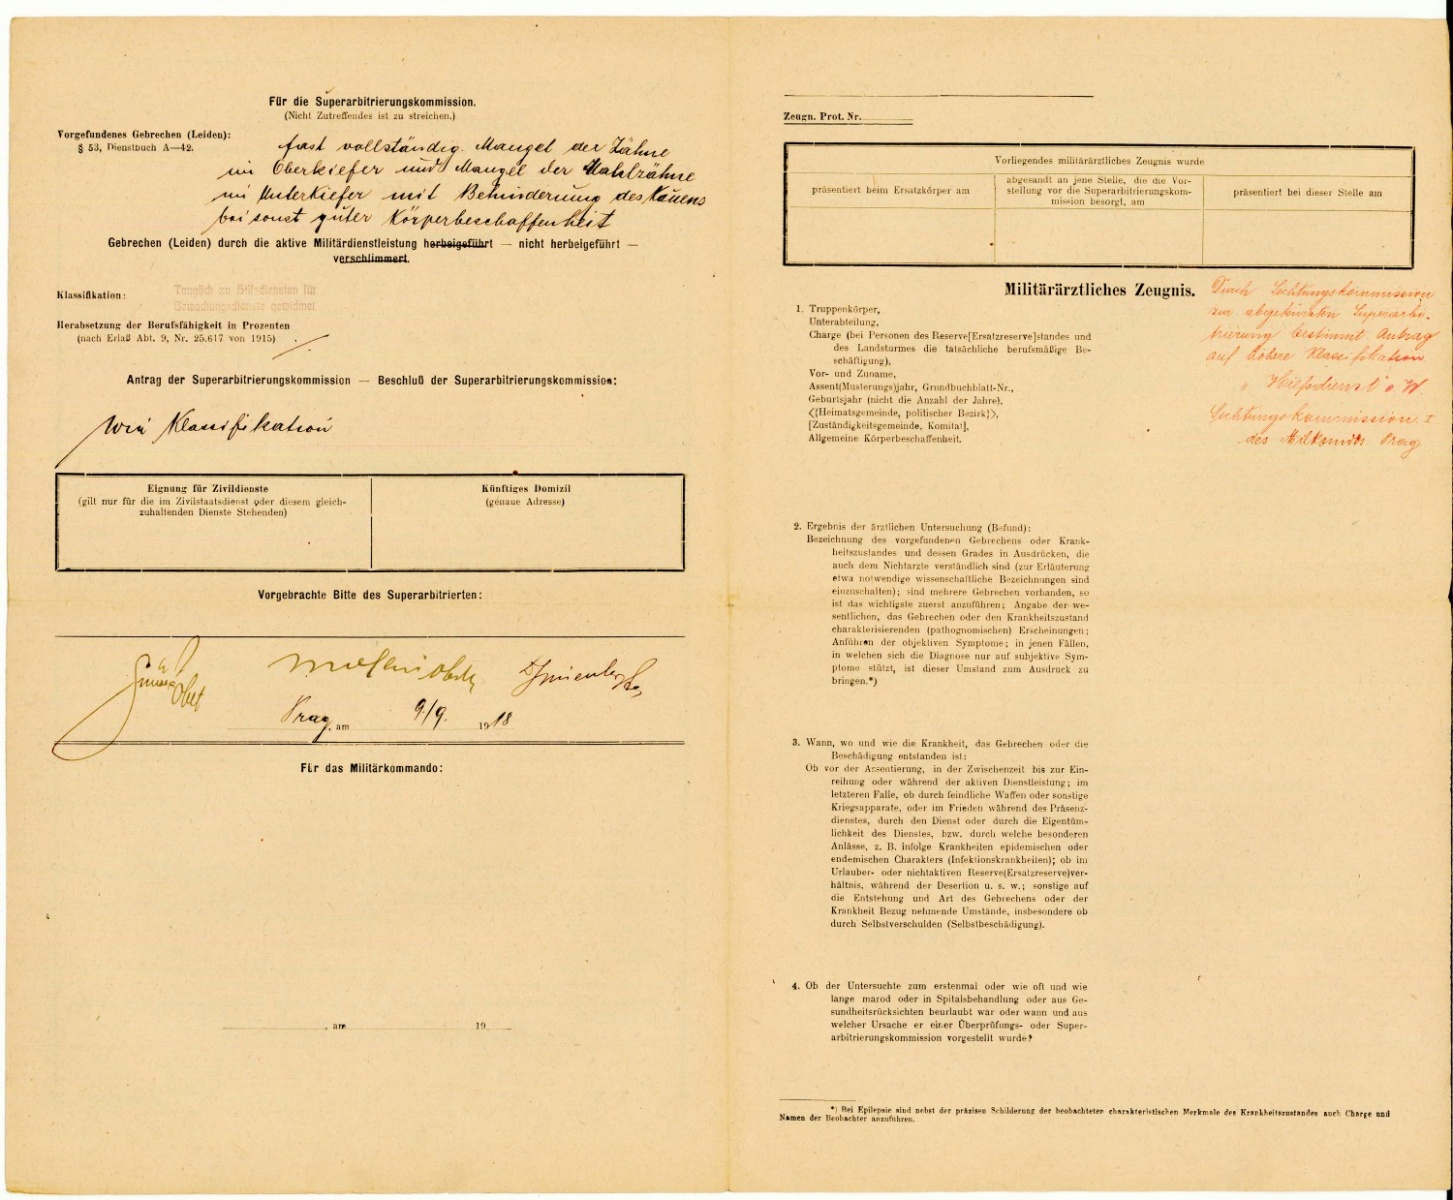 Für die Superarbitrierungskommission.
(Nicht Zutreffendes ist zu streichen.)
Vorgefundenes Gebrechen (Leiden):
§ 53, Dienstbuch A—42.
fast vollständig. Mangel der Zähne
im Oberkiefer und Mangel der Mahlzähne
im Unterkiefer mit Behinderung des Kauens
bei sonst guter Körperbeschaffenheit
Gebrechen (Leiden) durch die aktive Militärdienstleistung herbeigeführt — nicht herbeigeführt —
verschlimmert.
Klassifikation:
Tauglich zu Hilfsdiensten für
Bewachungsdienste geeignet
Herabsetzung der Berufsfähigkeit in Prozenten
(nach Erlaß Abt. 9, Nr. 25.617 von 1915)
Antrag der Superarbitrierungskommission — Beschluß der Superarbitrierungskommission:
Wie Klassifikation
Eignung für Zivildienste
(gilt nur für die im Zivilstaatsdienst oder diesem gleich-
zuhaltenden Dienste Stehenden)
Künftiges Domizil
(genaue Adresse)
Vorgebrachte Bitte des Superarbitrierten:
Prag, am 9/9. 1918
Für das Militärkommando:
, am 19
Zeugn. Prot. Nr.
Vorliegendes militärärztliches Zeugnis wurde
präsentiert beim Ersatzkörper am
abgesandt an jene Stelle, die die Vor-
stellung vor die Superarbitrierungskom-
mission besorgt, am
präsentiert bei dieser Stelle am
Militärärztliches Zeugnis.
Durch Sichtungskommission
zur abgekürzten Superarbi-
trierung bestimmt. Antrag
auf höhere Klassifikation
"Hilfsdienst" o W.
Sichtungskommission I
des Milkomdos Prag
1. Truppenkörper,
Unterabteilung,
Charge (bei Personen des Reserve[Ersatzreserve]standes und
des Landsturmes die tatsächliche berufsmäßige Be-
schäftigung),
Vor- und Zuname,
Assent(Musterungs)jahr, Grundbuchblatt-Nr.,
Geburtsjahr (nicht die Anzahl der Jahre),
⟨(Heimatsgemeinde, politischer Bezirk)⟩,
[Zuständigkeitsgemeinde, Komitat],
Allgemeine Körperbeschaffenheit.
2. Ergebnis der ärztlichen Untersuchung (Befund):
Bezeichnung des vorgefundenen Gebrechens oder Krank-
heitszustandes und dessen Grades in Ausdrücken, die
auch dem Nichtarzte verständlich sind (zur Erläuterung
etwa notwendige wissenschaftliche Bezeichnungen sind
einzuschalten); sind mehrere Gebrechen vorhanden, so
ist das wichtigste zuerst anzuführen; Angabe der we-
sentlichen, das Gebrechen oder den Krankheitszustand
charakterisierenden (pathognomischen) Erscheinungen;
Anführen der objektiven Symptome; in jenen Fällen,
in welchen sich die Diagnose nur auf subjektive Sym-
ptome stützt, ist dieser Umstand zum Ausdruck zu
bringen.*)
3. Wann, wo und wie die Krankheit, das Gebrechen oder die
Beschädigung entstanden ist:
Ob vor der Assentierung, in der Zwischenzeit bis zur Ein-
reihung oder während der aktiven Dienstleistung; im
letzteren Falle, ob durch feindliche Waffen oder sonstige
Kriegsapparate, oder im Frieden während des Präsenz-
dienstes, durch den Dienst oder durch die Eigentüm-
lichkeit des Dienstes, bzw. durch welche besonderen
Anlässe, z. B. infolge Krankheiten epidemischen oder
endemischen Charakters (Infektionskrankheiten); ob im
Urlauber- oder nichtaktiven Reserve(Ersatzreserve)ver-
hältnis, während der Desertion u. s. w.; sonstige auf
die Entstehung und Art des Gebrechens oder der
Krankheit Bezug nehmende Umstände, insbesondere ob
durch Selbstverschulden (Selbstbeschädigung).
4. Ob der Untersuchte zum erstenmal oder wie oft und wie
lange marod oder in Spitalsbehandlung oder aus Ge-
sundheitsrücksichten beurlaubt war oder wann und aus
welcher Ursache er einer Überprüfungs- oder Super-
arbitrierungskommission vorgestellt wurde?
*) Bei Epilepsie sind nebst der präzisen Schilderung der beobachteten charakteristischen Merkmale des Krankheitszustandes auch Charge und
Namen der Beobachter anzuführen.